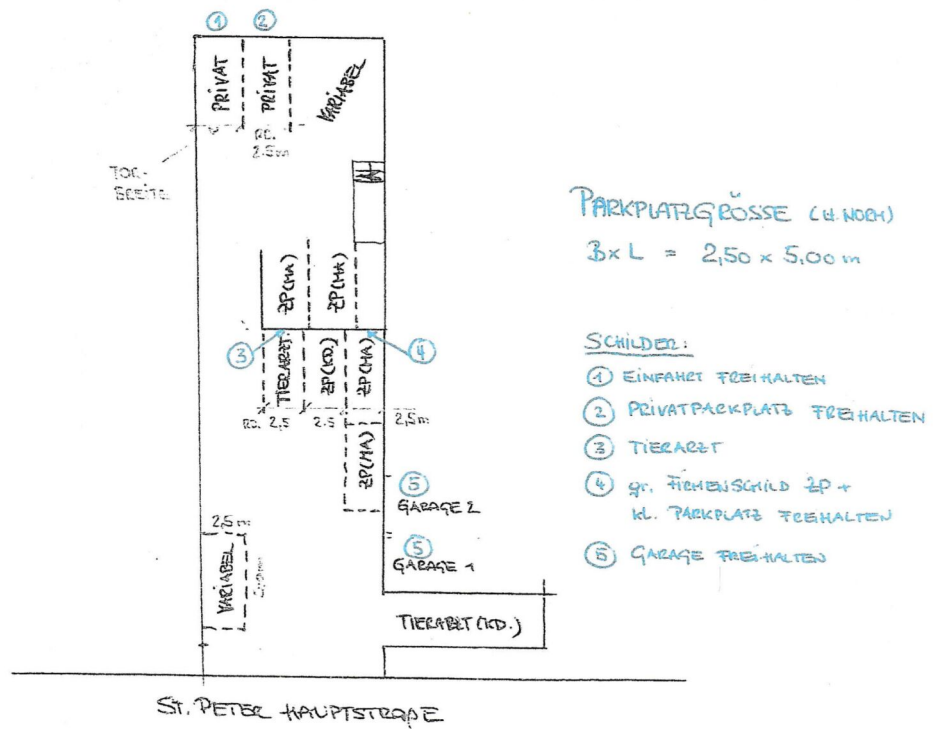 1 2
PRIVAT
PRIVAT
VARIABEL
RD.
2.5m
TOR-
BREITE
ZP(MA)
ZP(MA)
3
4
TIERARZT.
ZP(KD.)
ZP(MA)
RD. 2,5 2.5 2,5m
ZP(MA)
5
GARAGE 2
5
GARAGE 1
2,5m
VARIABEL
TIERARZT (KD.)
ST. PETER HAUPTSTRAßE
PARKPLATZGRÖSSE (LT. NORM)
B x L = 2,50 x 5,00 m
SCHILDER:
1 EINFAHRT FREIHALTEN
2 PRIVATPARKPLATZ FREIHALTEN
3 TIERARZT
4 gr. FIRMENSCHILD ZP +
kl. PARKPLATZ FREIHALTEN
5 GARAGE FREIHALTEN